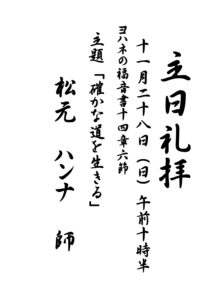 主日礼拝
十一月二十八日（日）午前十時半
ヨハネの福音書十四章六節
主題「確かな道を生きる」
松元　ハンナ　師